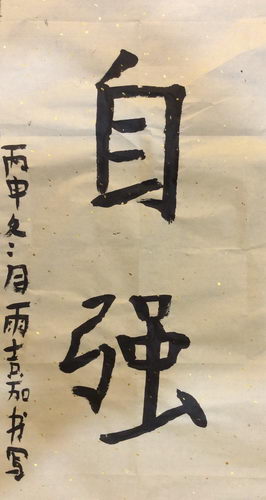 自强
丙申冬月雨嘉书写